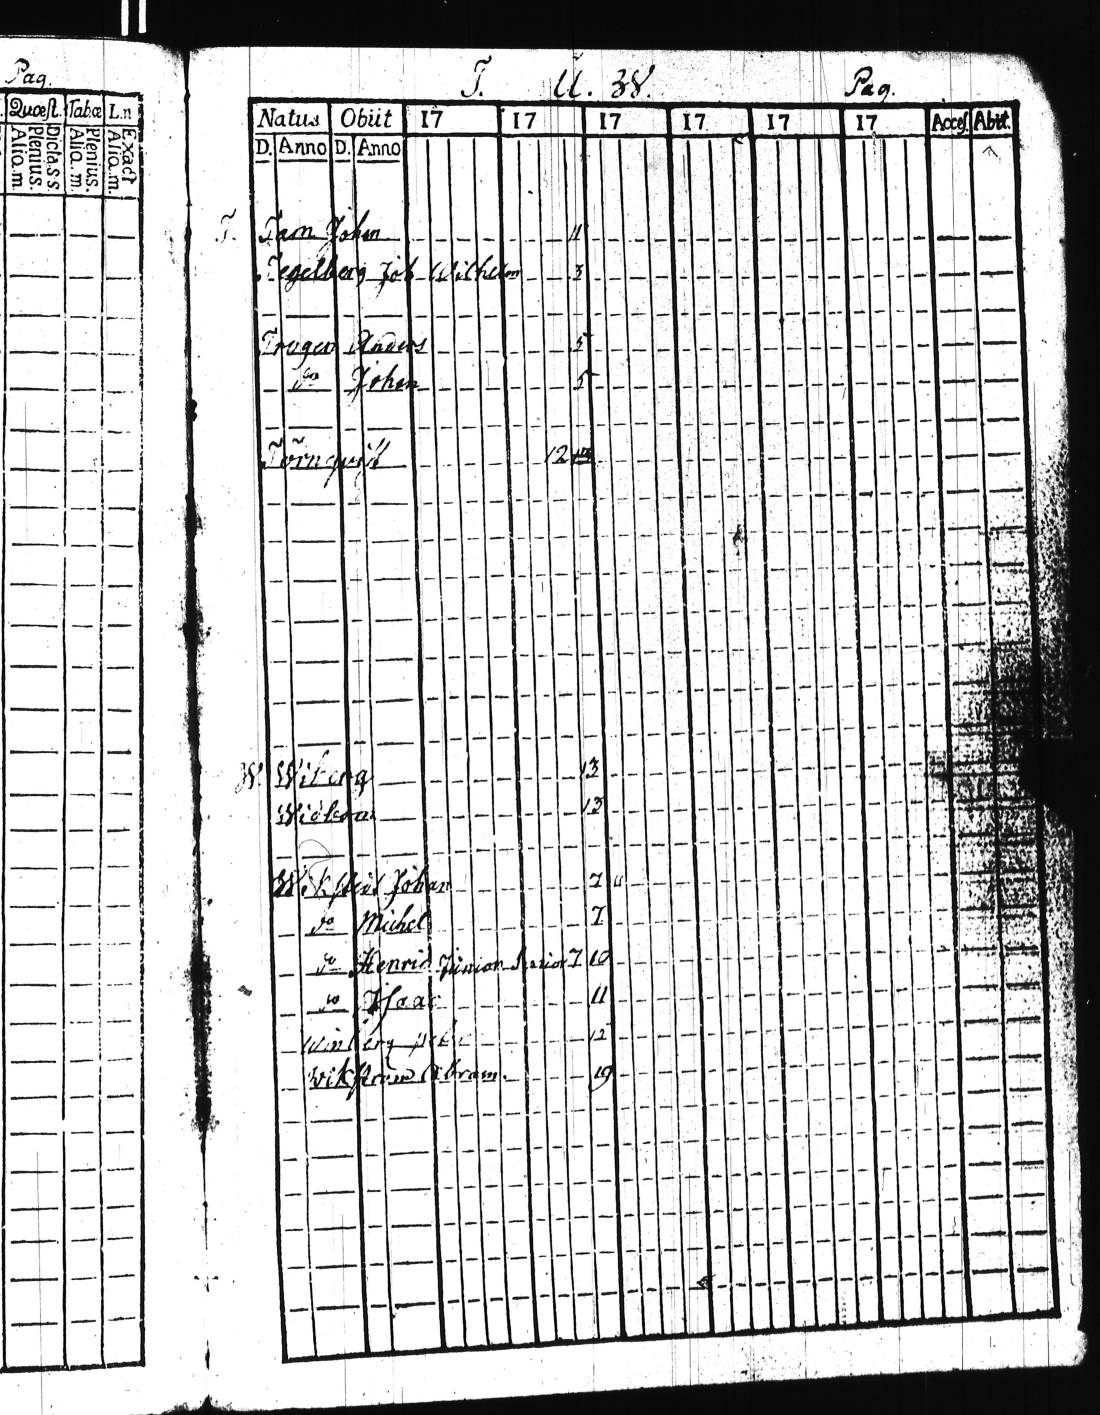 Pag.
Quæst. Tabæ L.n
Dicta s.s. Plenius. Alia.m. Plenius. Alia.m. Exact Alia.m.
T. U. W. Pag.
Natus Obiit 17 17 17 17 17 17 Acces. Abit.
D. Anno D. Anno
T. Tarn Johan 11
Tegelberg Joh Wilhelm 3
Trogen Anders 5
do Johan 5
Törnqvist 12
W. Wiberg 13
13
Johan 7
do Michel 7
do Henric Junior Senior 7 10
do Isaac 11
Winberg 12
Wikström Abram. 19